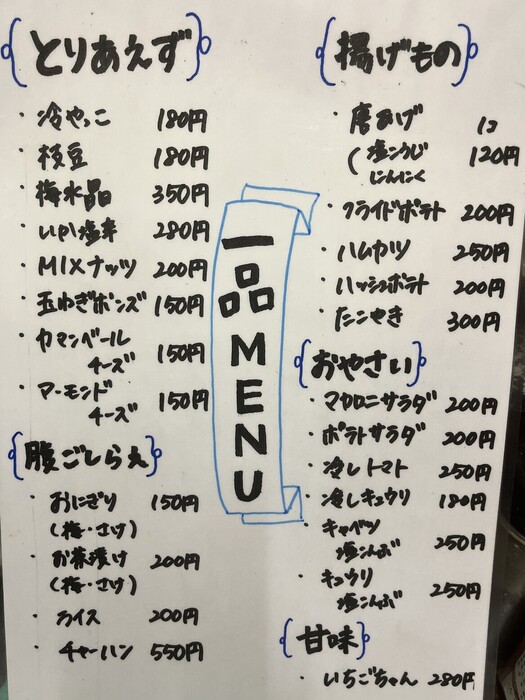 とりあえず
・冷やっこ 180円
・枝豆 180円
・梅水晶 350円
・いか塩辛 280円
・MIXナッツ 200円
・玉ねぎポンズ 150円
・カマンベール
チーズ 150円
・アーモンド
チーズ 150円
腹ごしらえ
・おにぎり 150円
(梅・さけ)
・お茶漬け 200円
(梅・さけ)
・ライス 200円
・チャーハン 550円
一品MENU
揚げもの
・唐あげ 1コ
(塩こうじ 120円
にんにく
・フライドポテト 200円
・ハムカツ 250円
・ハッシュポテト 200円
・たこやき 300円
おやさい
・マカロニサラダ 200円
・ポテトサラダ 200円
・冷しトマト 250円
・冷しキュウリ 180円
・キャベツ
塩こんぶ 250円
・キュウリ
塩こんぶ 250円
甘味
・いちごちゃん 280円